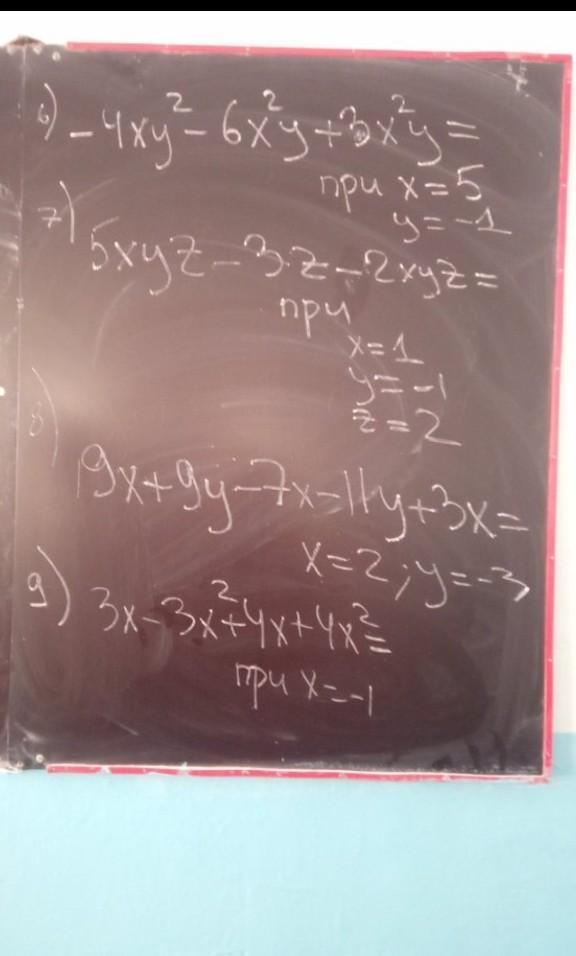 6) -4xy² - 6x²y + 3x²y =
при x = 5
y = -1
7) 5xyz - 3·z - 2xyz =
при
x = 1
y = -1
z = 2
8) 19x + 9y - 7x - 11y + 3x =
x = 2; y = -3
9) 3x - 3x² + 4x + 4x² =
при x = -1